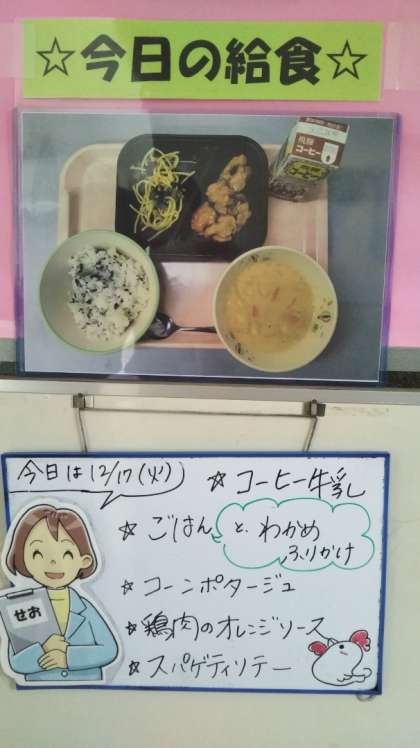 ☆今日の給食☆
飛騨
コーヒー
今日は12/17(火)
☆コーヒー牛乳
☆ごはんと わかめ
ふりかけ
☆コーンポタージュ
☆鶏肉のオレンジソース
☆スパゲティソテー
せお